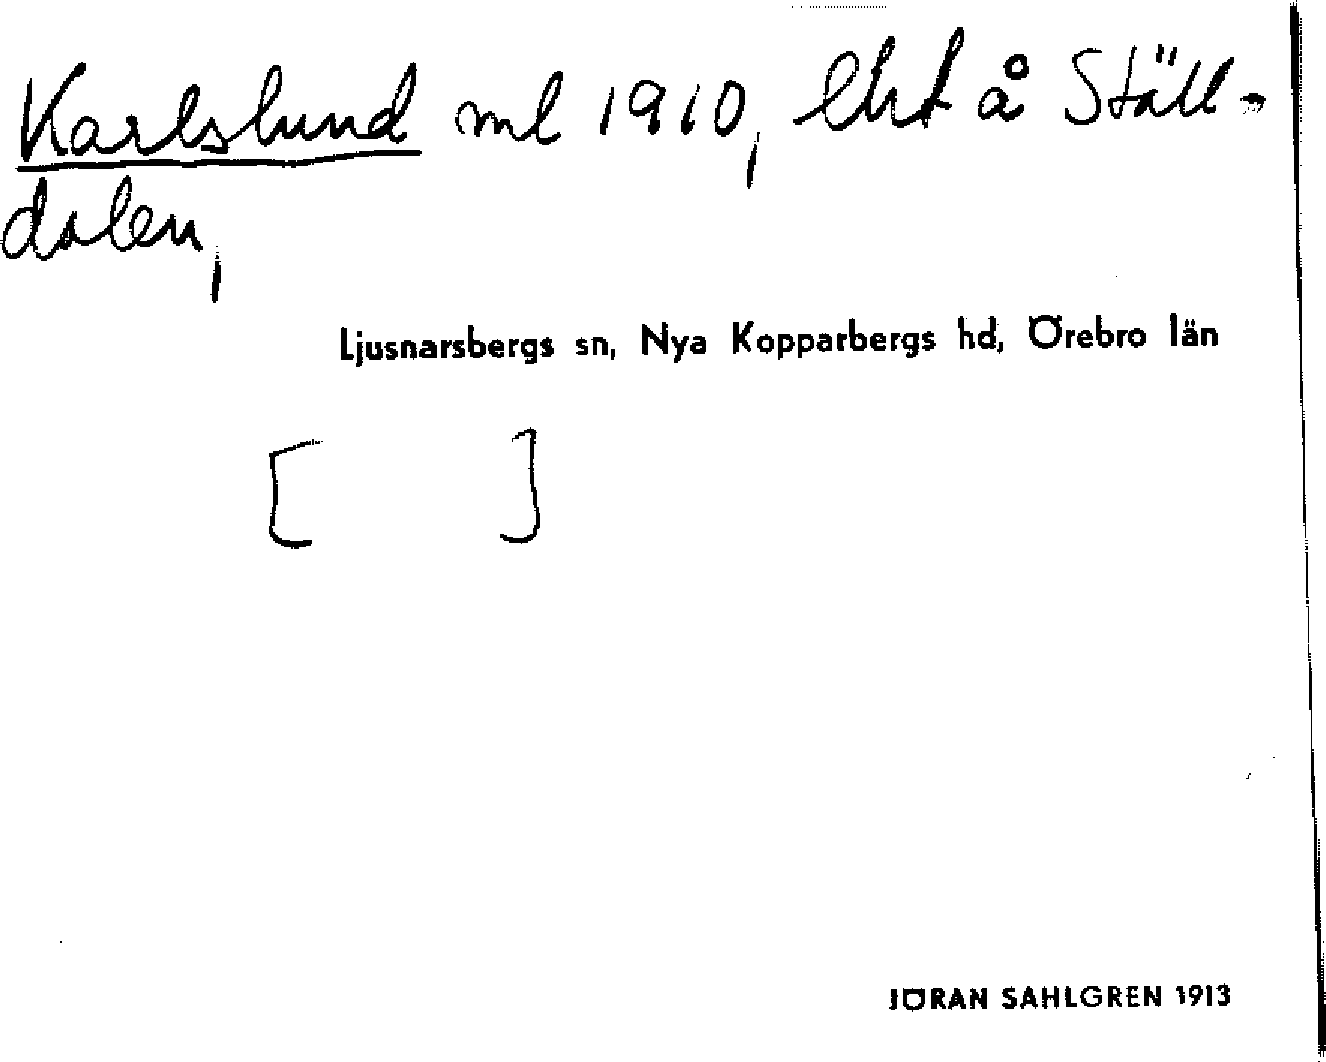 Karlslund ml 1910, lht å Ställ-
dalen,
Ljusnarsbergs sn, Nya Kopparbergs hd, Örebro län
[ ]
JÖRAN SAHLGREN 1913